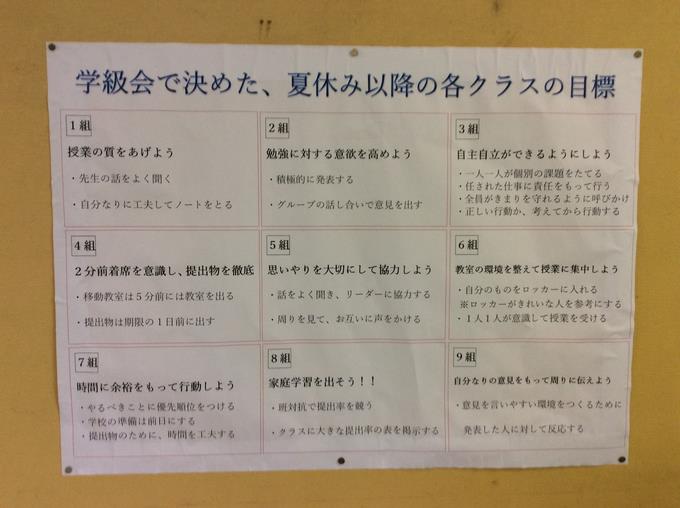 学級会で決めた、夏休み以降の各クラスの目標
１組
授業の質をあげよう
・先生の話をよく聞く
・自分なりに工夫してノートをとる
２組
勉強に対する意欲を高めよう
・積極的に発表する
・グループの話し合いで意見を出す
３組
自主自立ができるようにしよう
・一人一人が個別の課題をたてる
・任された仕事に責任をもって行う
・全員がきまりを守れるように呼びかけ
・正しい行動か、考えてから行動する
４組
２分前着席を意識し、提出物を徹底
・移動教室は５分前には教室を出る
・提出物は期限の１日前に出す
５組
思いやりを大切にして協力しよう
・話をよく聞き、リーダーに協力する
・周りを見て、お互いに声をかける
６組
教室の環境を整えて授業に集中しよう
・自分のものをロッカーに入れる
※ロッカーがきれいな人を参考にする
・１人１人が意識して授業を受ける
７組
時間に余裕をもって行動しよう
・やるべきことに優先順位をつける
・学校の準備は前日にする
・提出物のために、時間を工夫する
８組
家庭学習を出そう！！
・班対抗で提出率を競う
・クラスに大きな提出率の表を掲示する
９組
自分なりの意見をもって周りに伝えよう
・意見を言いやすい環境をつくるために
発表した人に対して反応する